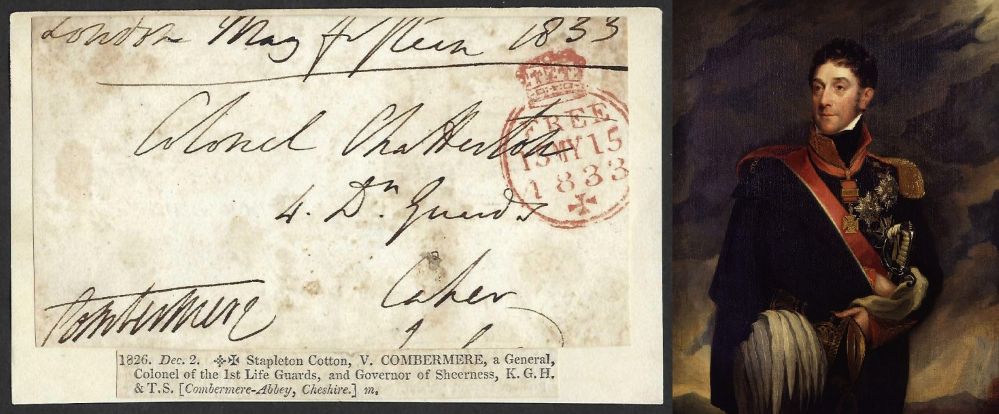 London May fifteen 1833
Colonel Chatterton
4. Dn Guards
Caher
Combermere
FREE
15MY15
1833
1826. Dec. 2. ✣✠ Stapleton Cotton, V. COMBERMERE, a General,
Colonel of the 1st Life Guards, and Governor of Sheerness, K. G. H.
& T.S. [Combermere-Abbey, Cheshire.] m.